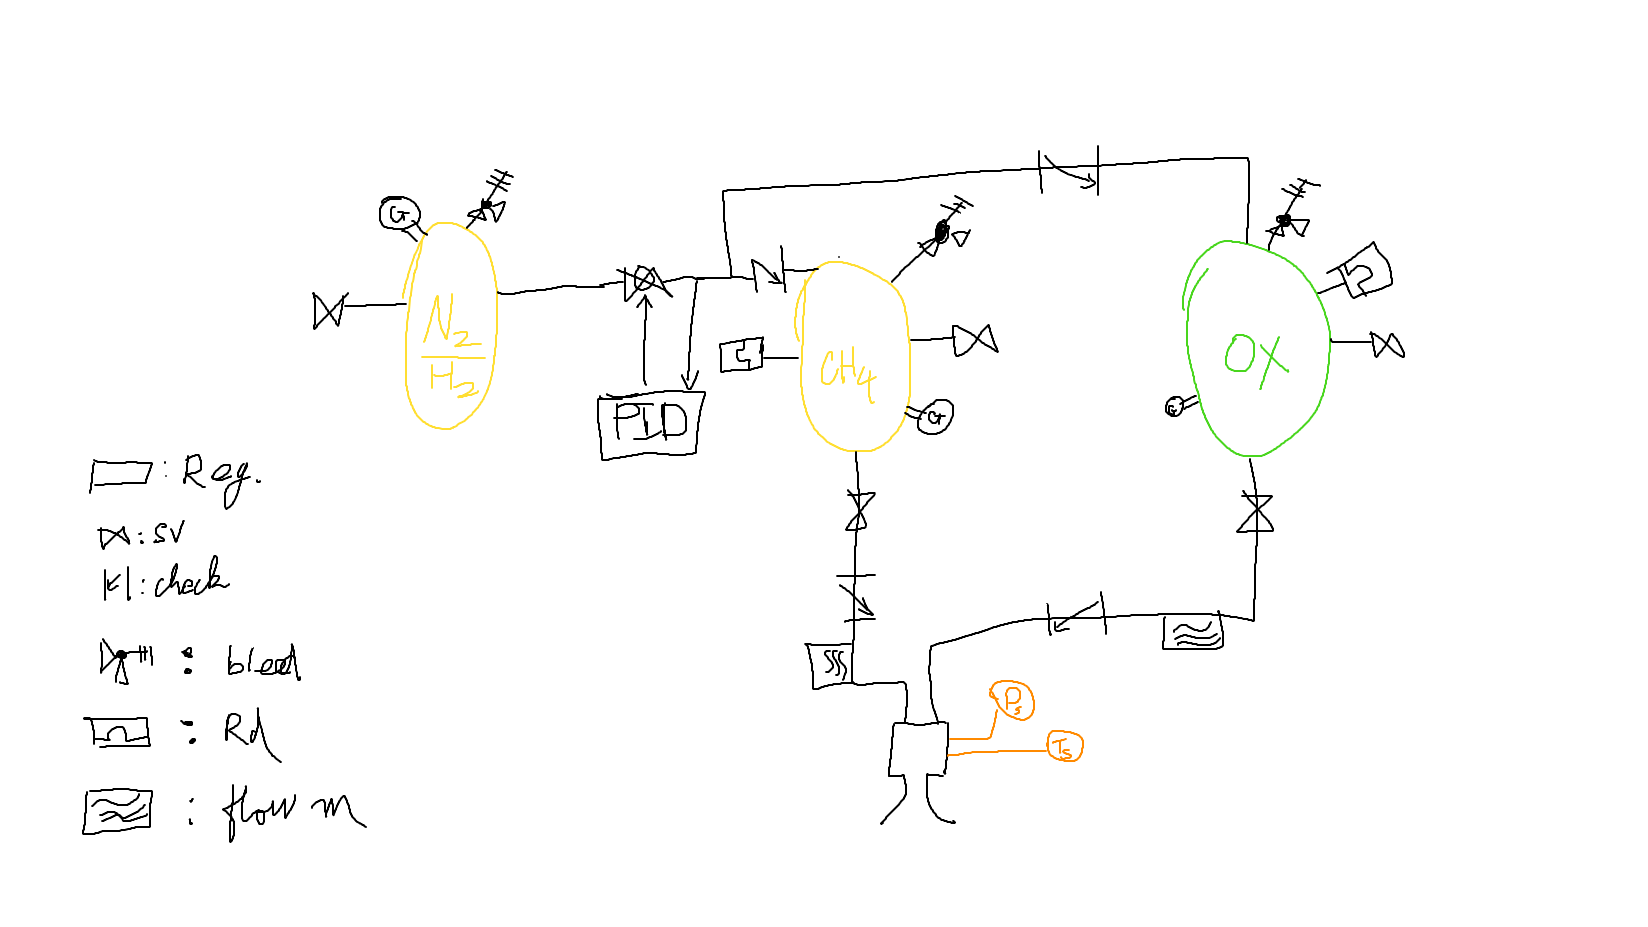 G
N2
H2
PID
CH4
G
OX
G
: Reg.
: SV
: check
: bleed
: Rd
: flow m
Ps
Ts